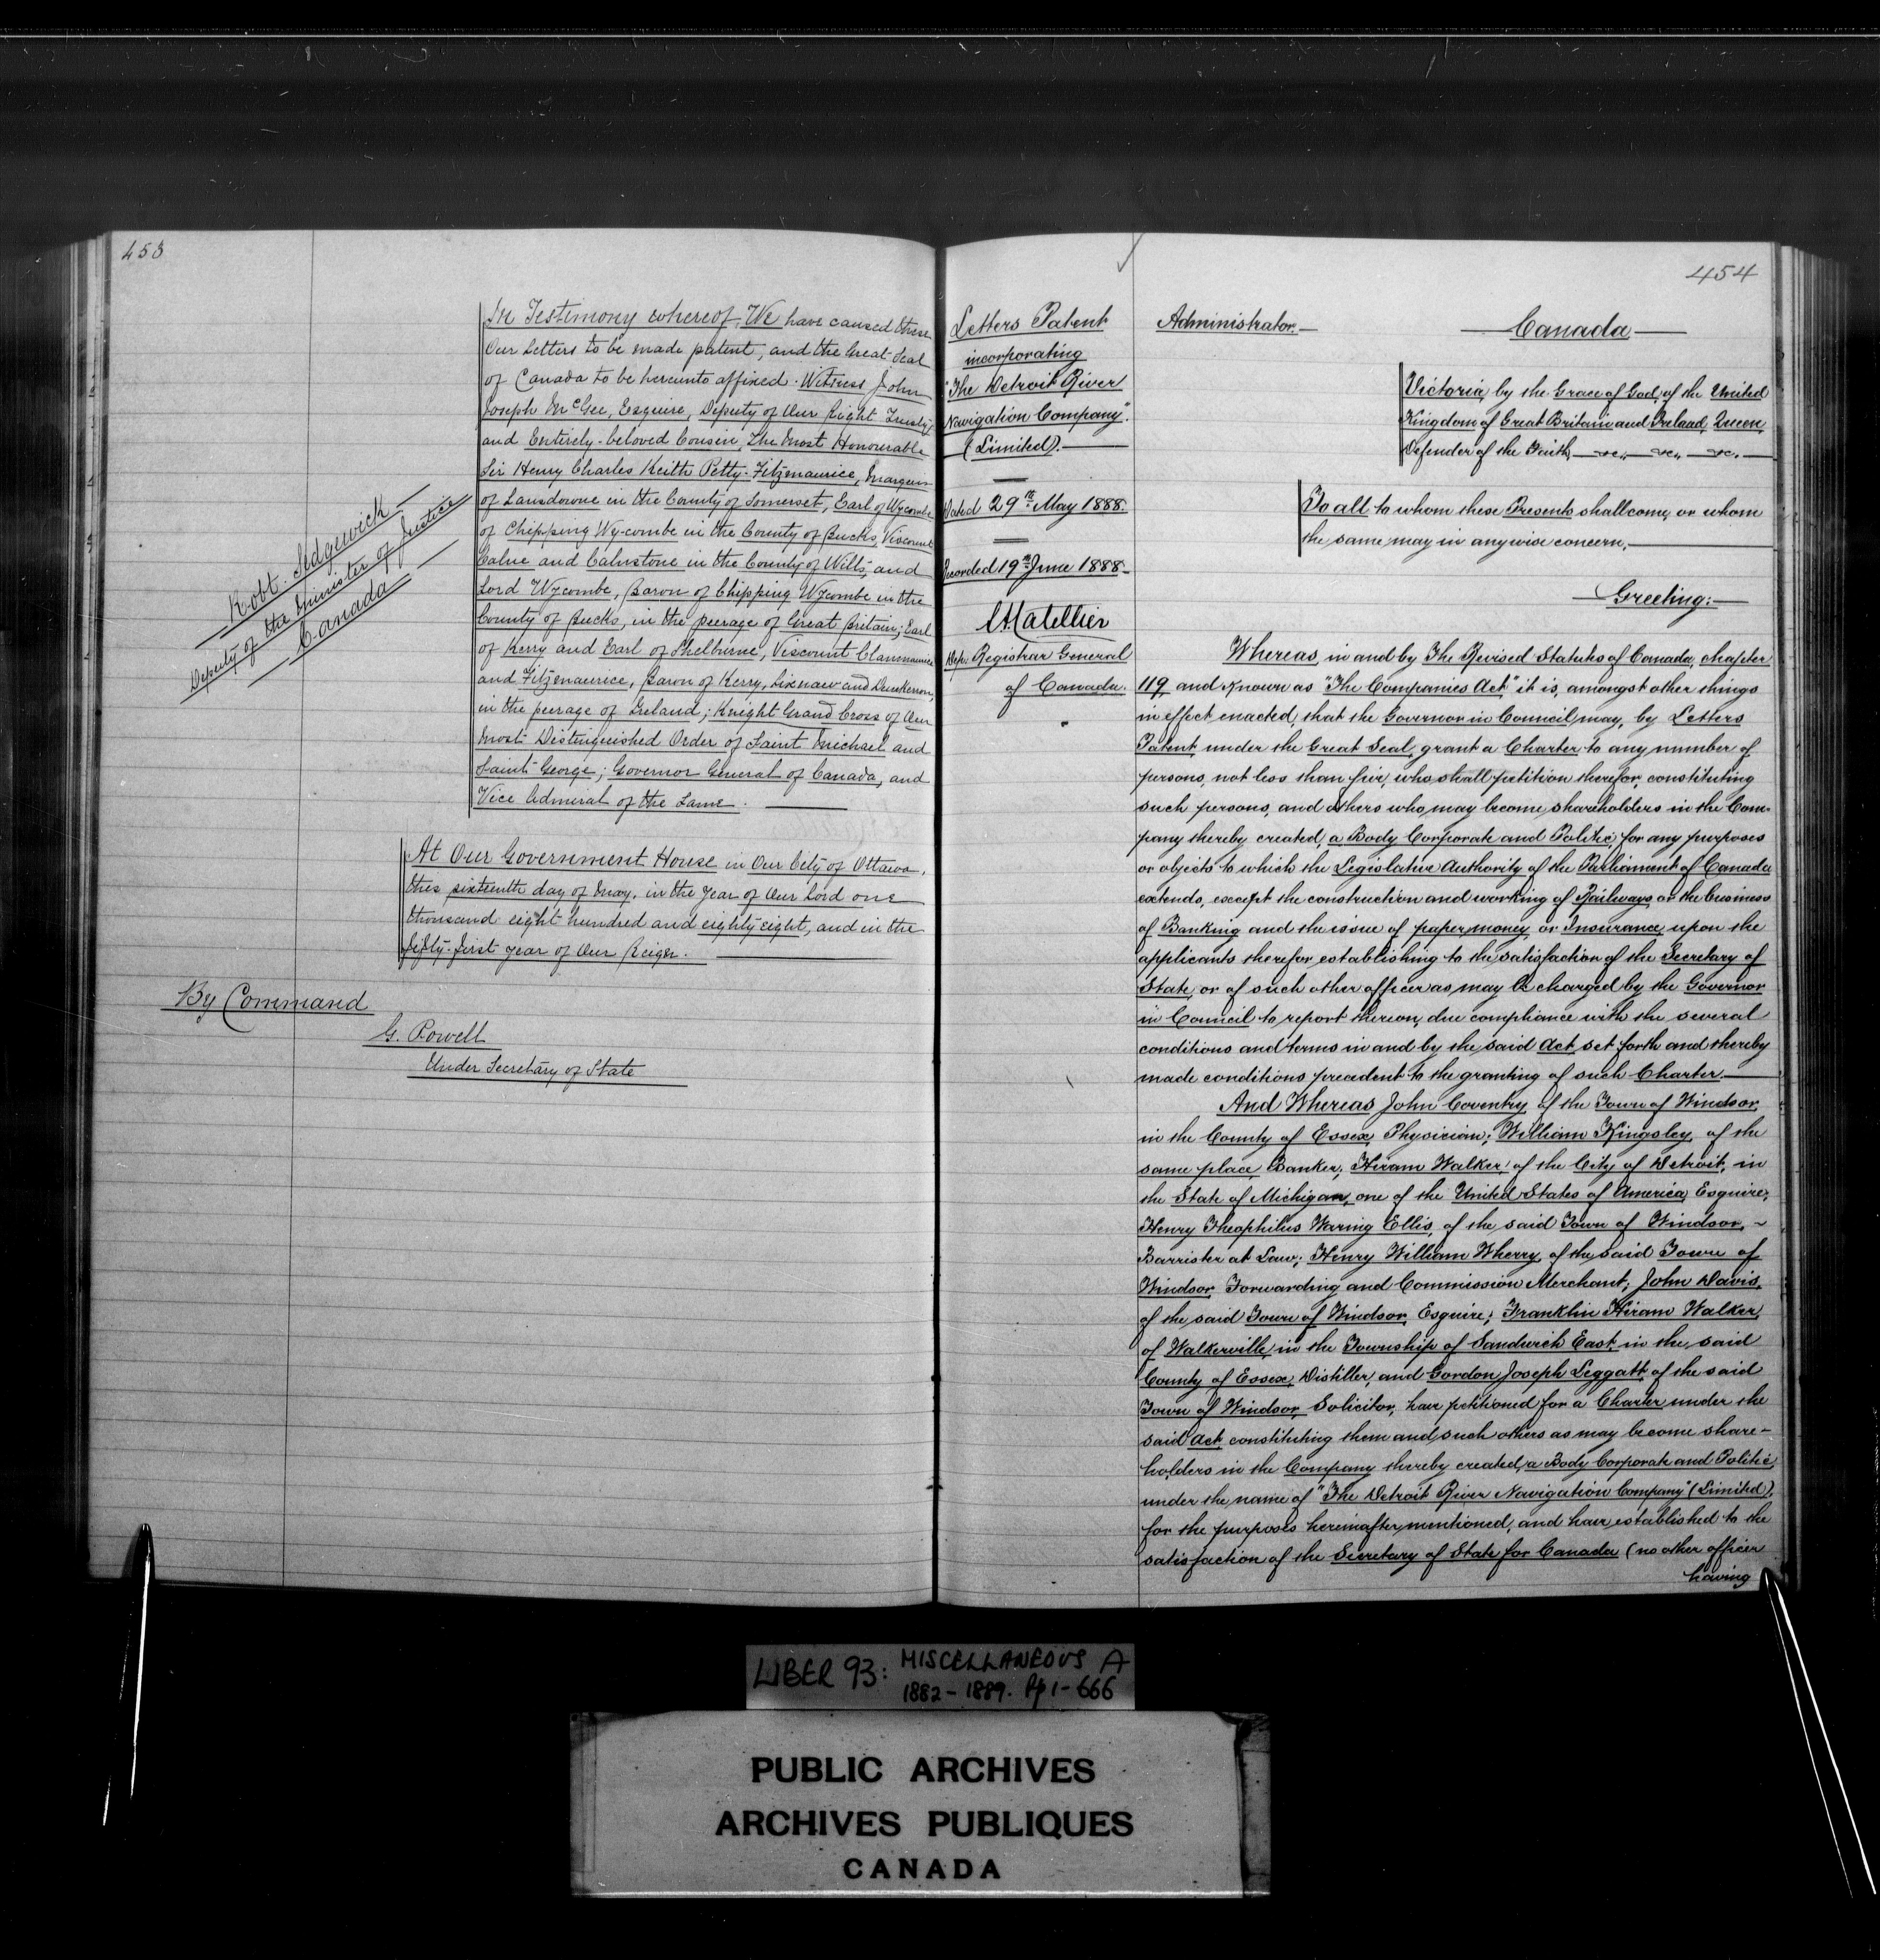 453
In Testimony whereof, We have caused these
Our Letters to be made patent, and the Great Seal
of Canada to be hereunto affixed. Witness John
Joseph McGee, Esquire, Deputy of Our Right Trusty
and Entirely-beloved Cousin, The Most Honourable
Sir Henry Charles Keith Petty-Fitzmaurice, Marquis
of Lansdowne in the County of Somerset, Earl of Wycombe
of Chipping Wycombe in the County of Bucks, Viscount
Calne and Calnstone in the County of Wilts, and
Lord Wycombe, Baron of Chipping Wycombe in the
County of Bucks, in the peerage of Great Britain; Earl
of Kerry and Earl of Shelburne, Viscount Clanmaurice
and Fitzmaurice, Baron of Kerry, Lixnaw and Dunkerron,
in the peerage of Ireland; Knight Grand Cross of Our
Most Distinguished Order of Saint Michael and
Saint George; Governor General of Canada, and
Vice Admiral of the Same.
Robt. Sedgewick
Deputy of the Minister of Justice
Canada
At Our Government House in Our City of Ottawa,
this sixteenth day of May, in the Year of Our Lord one
thousand eight hundred and eighty eight, and in the
fifty-first year of Our Reign.
By Command
G. Powell
Under Secretary of State
454
Letters Patent
incorporating
"The Detroit River
Navigation Company"
(Limited).
Dated 29th May 1888.
Recorded 19th June 1888
Dep. Registrar General
of Canada.
Administrator.
Canada
Victoria, by the Grace of God, of the United
Kingdom of Great Britain and Ireland, Queen,
Defender of the Faith, &c., &c., &c.
To all to whom these Presents shall come, or whom
the same may in anywise concern,
Greeting:
Whereas, in and by The Revised Statutes of Canada, chapter
119, and known as "The Companies Act," it is, amongst other things
in effect enacted, that the Governor in Council may, by Letters
Patent under the Great Seal, grant a Charter to any number of
persons, not less than five, who shall petition therefor, constituting
such persons, and others who may become shareholders in the Com-
pany thereby created, a Body Corporate and Politic, for any purposes
or objects to which the Legislative Authority of the Parliament of Canada
extends, except the construction and working of Railways, or the business
of Banking and the issue of paper money, or Insurance, upon the
applicants therefor establishing to the satisfaction of the Secretary of
State, or of such other officer as may be charged by the Governor
in Council to report thereon, due compliance with the several
conditions and terms in and by the said Act set forth and thereby
made conditions precedent to the granting of such Charter.
And Whereas John Coventry, of the Town of Windsor,
in the County of Essex, Physician; William Kingsley, of the
same place, Banker; Hiram Walker, of the City of Detroit, in
the State of Michigan, one of the United States of America, Esquire;
Henry Theophilus Waring Ellis, of the said Town of Windsor,
Barrister at Law; Henry William Wherry, of the said Town of
Windsor, Forwarding and Commission Merchant; John Davis,
of the said Town of Windsor, Esquire; Franklin Hiram Walker,
of Walkerville, in the Township of Sandwich East, in the said
County of Essex, Distiller, and Gordon Joseph Leggatt, of the said
Town of Windsor, Solicitor, have petitioned for a Charter under the
said Act, constituting them and such others as may become share-
holders in the Company thereby created, a Body Corporate and Politic,
under the name of "The Detroit River Navigation Company" (Limited),
for the purposes hereinafter mentioned, and have established to the
satisfaction of the Secretary of State for Canada (no other officer
having
LIBER 93: MISCELLANEOUS A
1882-1889. Pp 1-666
PUBLIC ARCHIVES
ARCHIVES PUBLIQUES
CANADA